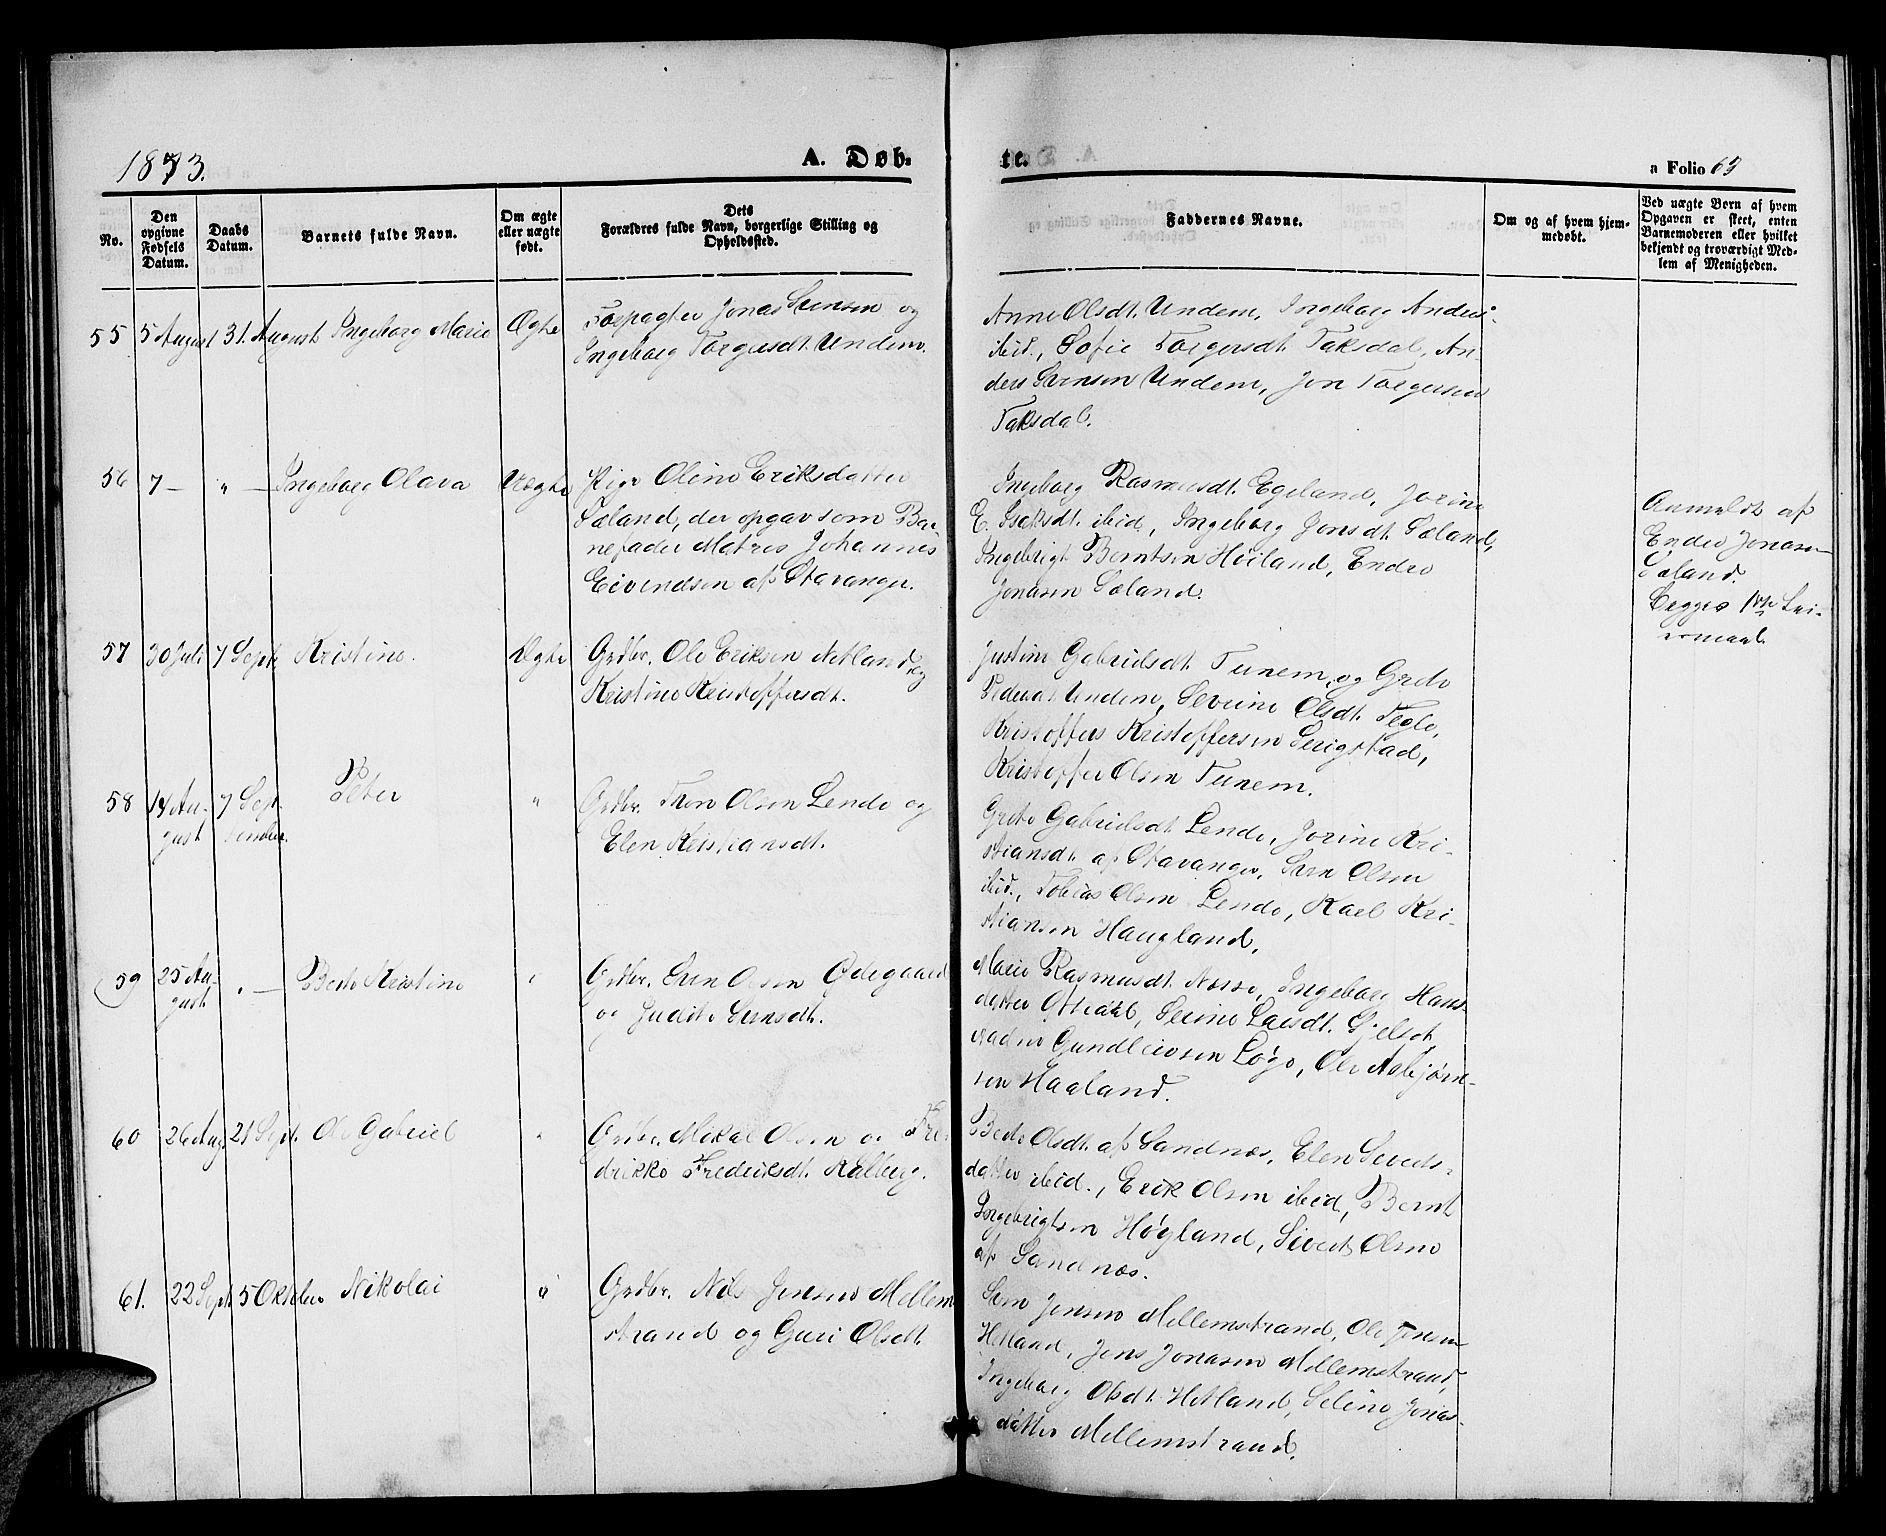 1873.
A. Døb-
te.
a Folio 69
No.
Den opgivne Fødsels Datum.
Daabs Datum.
Barnets fulde Navn.
Om ægte eller uægte født.
Dets Forældres fulde Navn, borgerlige Stilling og Opholdssted.
Faddernes Navne.
Om og af hvem hjemmedøbt.
Ved uægte Børn af hvem Opgaven er skeet, enten Barnemoderen eller hvilket bekjendt og troværdigt Medlem af Menigheden.
55 5 August 31. August Ingeborg Marie Ægte
Forpagter Jonas Svensen og
Ingeborg Torgersdt. Undem.
Anne Olsdt. Undem, Ingeborg Anders-
ibid., Sofie Torgersdt. Taksdal, An-
ders Svensen Undem, Jon Torgersen
Taksdal.
56 7 — " — Ingeborg Olava Uægte
Pige Oline Eriksdatter
Sæland, der opgav som Bar-
nefader Matros Johannes
Eivendsen af Stavanger.
Ingeborg Rasmusdt. Egeland, Jorine
E. Isaksdt. ibid, Ingeborg Jonsdt. Sæland,
Ingebrigt Berntsen Høiland, Endre
Jonasen Sæland.
Anmeldt af
Endre Jonasen
Sæland.
Begges 1ste Lei-
ermaal.
57 30 Juli 7 Sept. Kristine. Ægte
Grdbr. Ole Eriksen Netland og
Kristine Kristoffersdt.
Justine Gabrielsdt. Tunem, og Grete
Pedersdt. Undem, Severine Olsdt. Tegle,
Kristoffers Kristoffersen Serigstad,
Kristoffer Olsen Tunem.
58 14 Au- 7 Sept- Peter "
gust tember.
Grdbr. Tron Olsen Lende og
Elen Kristiansdt.
Grete Gabrielsdt. Lende, Jorine Kri-
stiansdt. af Stavanger, Sven Olsen
ibid., Tobias Olsen Lende, Karl Kri-
stiansen Haugland,
59 25 Au- " — Berte Kristine "
gust
Grdbr. Sven Olsen Ødegaard
og Judite Svensdt.
Marie Rasmusdt. Norse, Ingeborg Hans-
datter, Serine Larsdt. Gjelset,
Gundleivsen Løge, Ole Asbjørn-
sen Haaland.
60 26 Aug. 21 Sept. Ole Gabriel "
Grdbr. Mikal Olsen og Fre-
drikke Frederiksdt. Kalberg.
Berte Olsdt. af Sandnæs, Elen Siverts-
datter ibid., Erik Olsen ibid, Bernt
Ingebrigtsen Høyland, Sivert Olsen
af Sandnæs.
61. 22 Sept. 5 Oktober Nikolai "
Grdbr. Nils Jensen Mellem-
strand og Guri Olsdt.
Sven Jensen Mellemstrand, Ole Jensen
Hetland, Jens Jonasen Mellemstrand,
Ingeborg Olsdt. Hetland, Seline Jonas-
datter Mellemstrand.